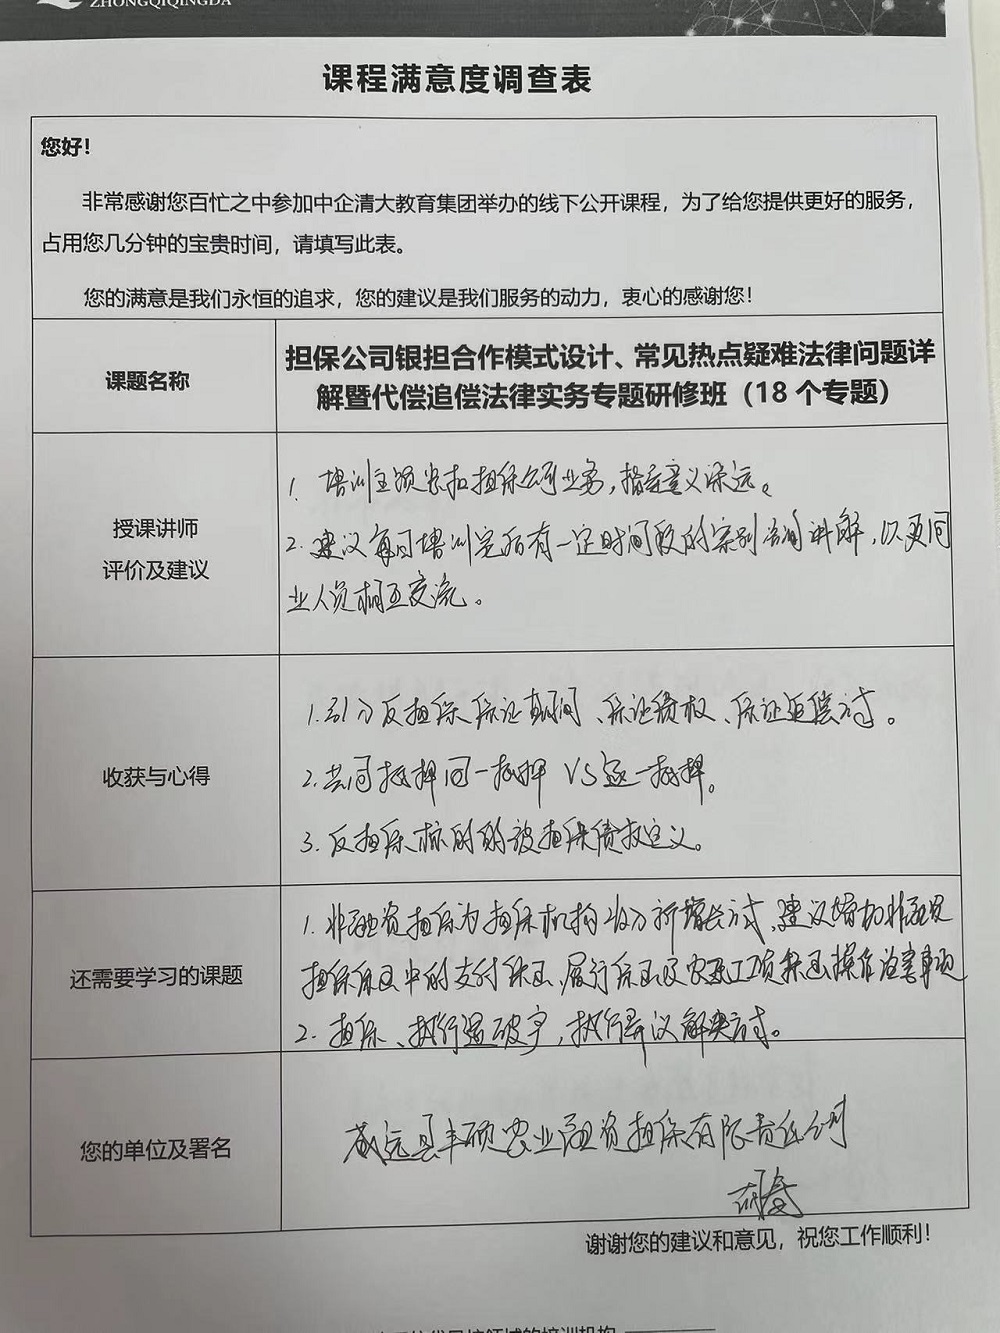 ZHONGQIQINGDA
课程满意度调查表
您好！
非常感谢您百忙之中参加中企清大教育集团举办的线下公开课程，为了给您提供更好的服务，
占用您几分钟的宝贵时间，请填写此表。
您的满意是我们永恒的追求，您的建议是我们服务的动力，衷心的感谢您！
课题名称
担保公司银担合作模式设计、常见热点疑难法律问题详
解暨代偿追偿法律实务专题研修班（18 个专题）
授课讲师
评价及建议
1. 培训主题紧扣担保公司业务，指导意义深远。
2. 建议每日培训完后有一定时间段的案例讲解，以更同
业人员相互交流。
收获与心得
1. 反担保保证期间、保证债权、保证追偿方式。
2. 共同抵押同一抵押 VS 逐一抵押。
3. 反担保标的的被担保债权定义。
还需要学习的课题
1. 非融资担保为担保机构收入新增长方式，建议增加非融资
担保保函中的支付保函、履行保函及农民工工资保函操作注意事项
2. 担保、执行遇破产，执行异议解决方式。
您的单位及署名
威远县丰硕农业融资担保有限责任公司
谢谢您的建议和意见，祝您工作顺利！
领域的培训机构